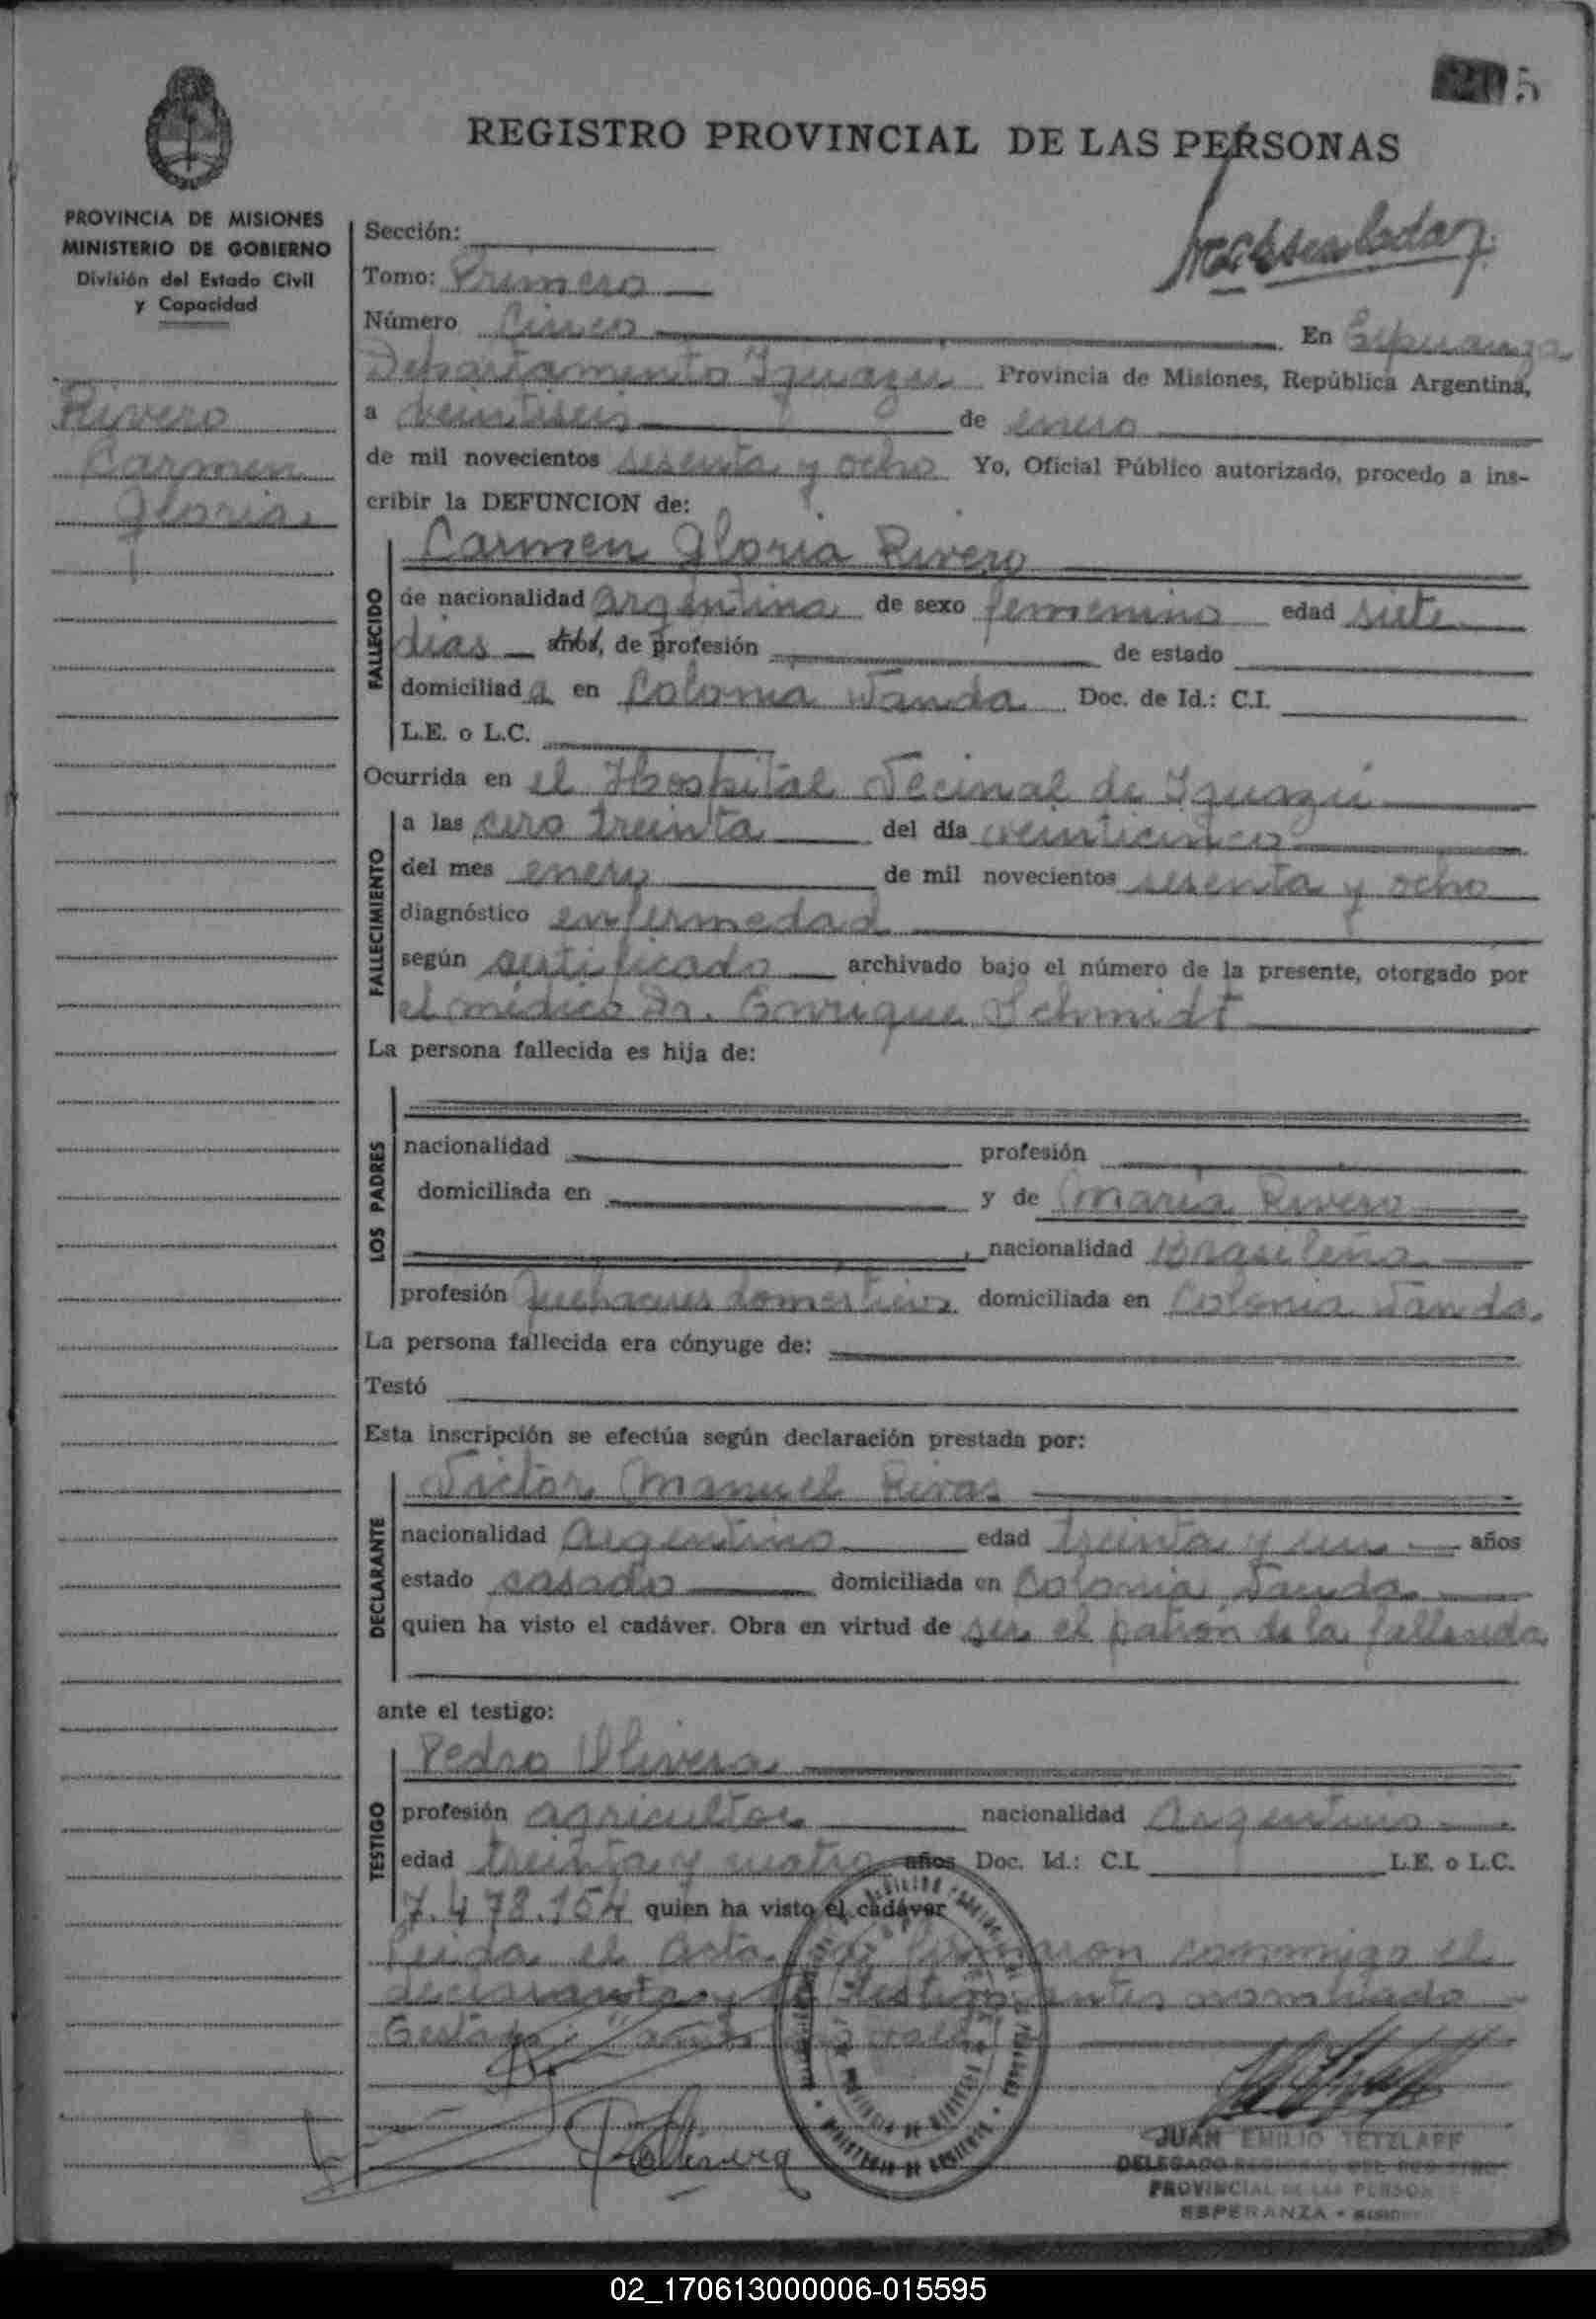 205
REGISTRO PROVINCIAL DE LAS PERSONAS
PROVINCIA DE MISIONES
MINISTERIO DE GOBIERNO
División del Estado Civil
y Capacidad
Rivero
Carmen
Gloria
Sección:
Tomo: Primero
Número Cinco En Esperanza
Departamento Iguazu Provincia de Misiones, República Argentina,
a veintiseis de enero
de mil novecientos sesenta y ocho Yo, Oficial Público autorizado, procedo a ins-
cribir la DEFUNCION de:
FALLECIDO
Carmen Gloria Rivero
de nacionalidad argentina de sexo femenino edad siete
dias años, de profesión de estado
domiciliad a en Colonia Wanda Doc. de Id.: C.I.
L.E. o L.C.
Ocurrida en el Hospital Vecinal de Iguazú
FALLECIMIENTO
a las cero treinta del día veinticinco
del mes enero de mil novecientos sesenta y ocho
diagnóstico enfermedad
según certificado archivado bajo el número de la presente, otorgado por
el médico Dr. Enrique Schmidt
La persona fallecida es hija de:
LOS PADRES
nacionalidad profesión
domiciliada en y de Maria Rivero
, nacionalidad Brasileña
profesión Quehaceres domésticos domiciliada en Colonia Wanda.
La persona fallecida era cónyuge de:
Testó
Esta inscripción se efectúa según declaración prestada por:
DECLARANTE
Victor Manuel Rivas
nacionalidad Argentino edad treinta y un años
estado casado domiciliada en Colonia Wanda
quien ha visto el cadáver. Obra en virtud de ser el patrón de la fallecida
ante el testigo:
TESTIGO
Pedro Olivera
profesión agricultor nacionalidad Argentino
edad treinta y cuatro años Doc. Id.: C.I. L.E. o L.C.
7.478.154 quien ha visto el cadáver
Leida el Acta la firmaron conmigo el
declarante y el testigo antes nombrado
Testado: "años"
JUAN EMILIO TETZLAFF
DELEGADO REGIONAL DEL REGISTRO
PROVINCIAL DE LAS PERSONAS
ESPERANZA - MISIONES
02_170613000006-015595